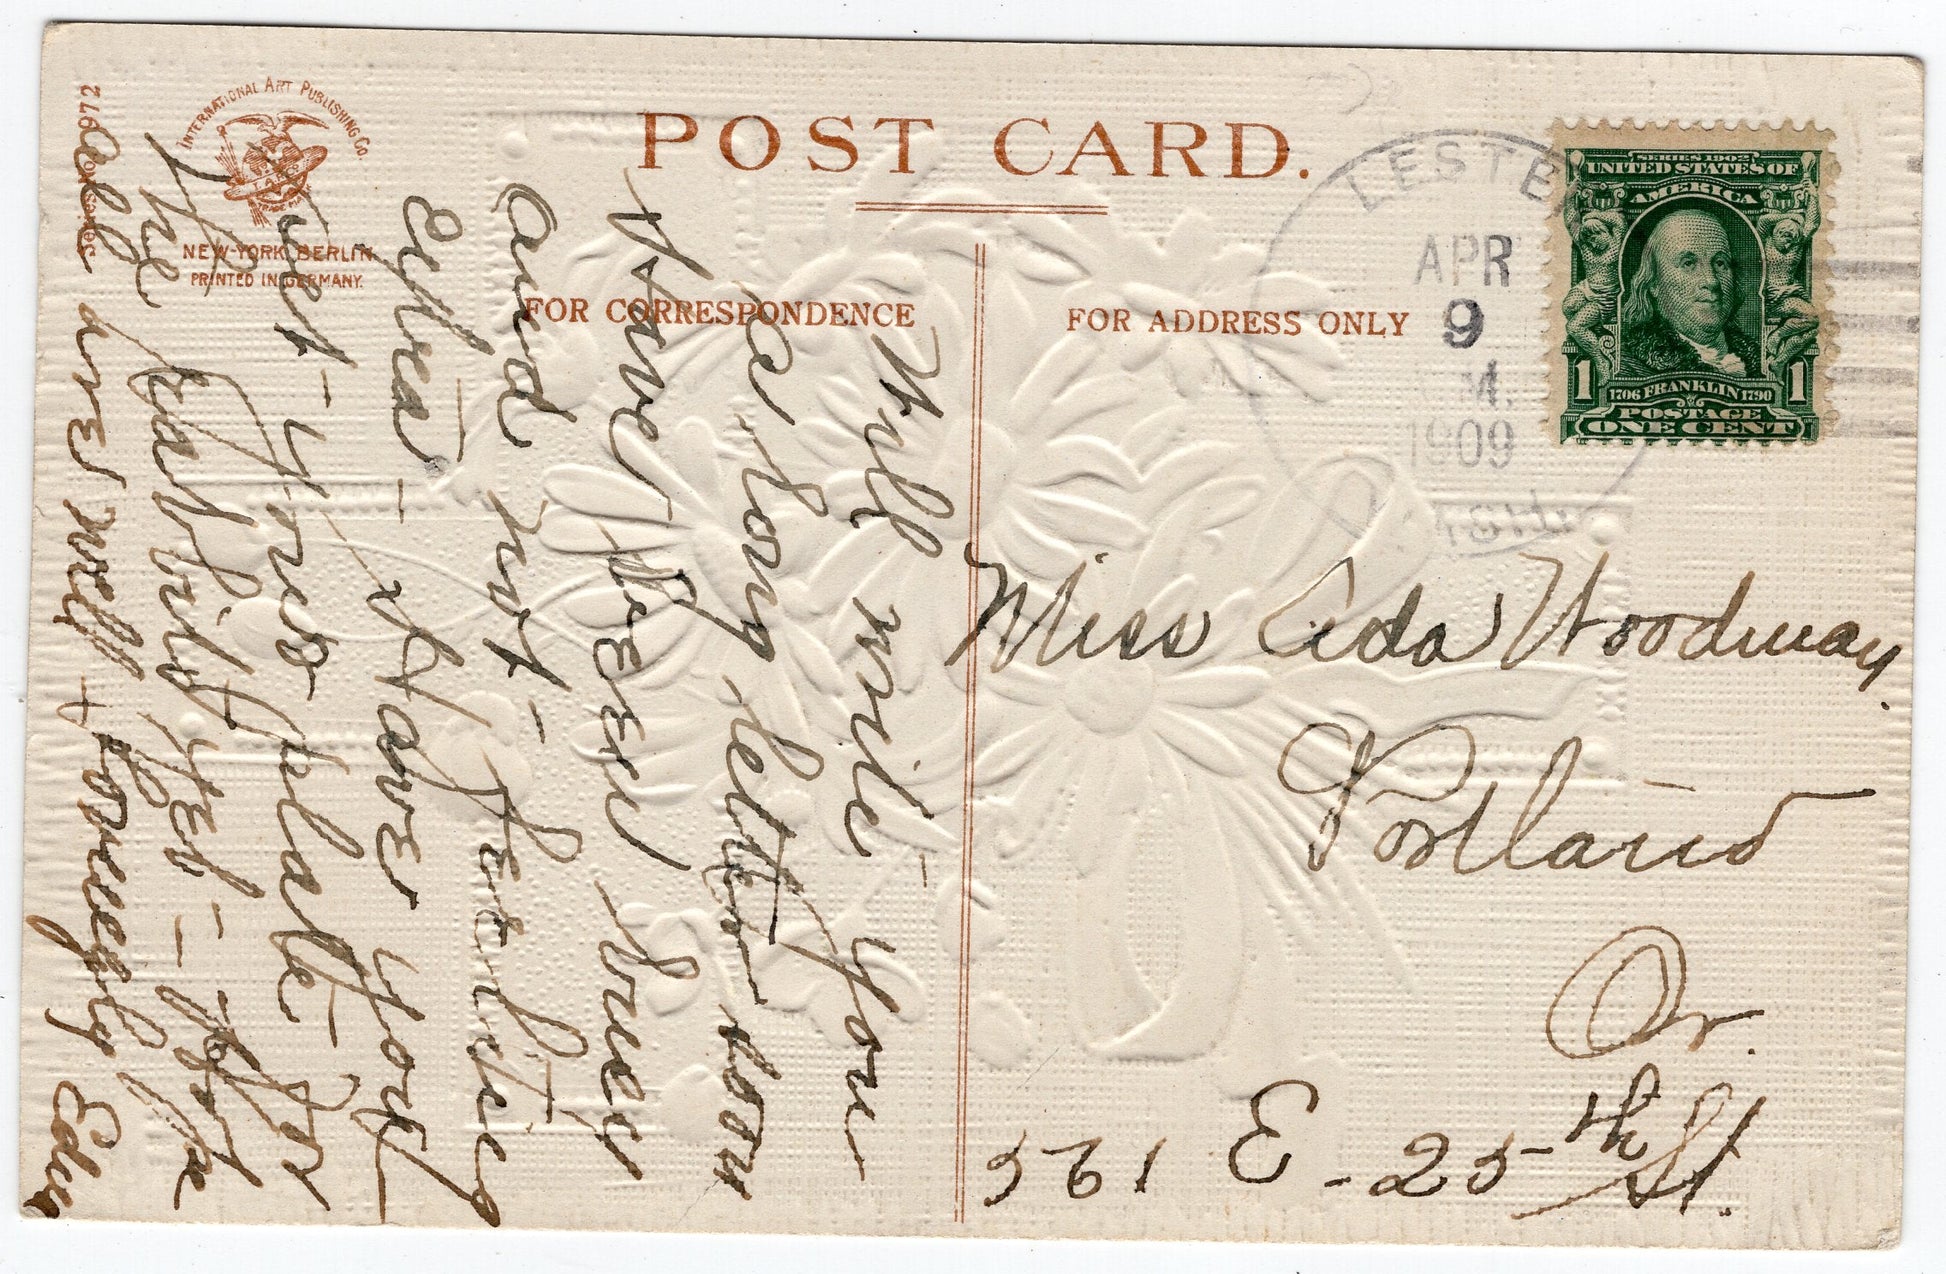 Series No. 1672
INTERNATIONAL ART PUBLISHING CO.
I.A.P.CO.
NEW-YORK BERLIN
PRINTED IN GERMANY.
POST CARD.
FOR CORRESPONDENCE
FOR ADDRESS ONLY
LESTER
APR
9
M.
1909
WASH.
SERIES 1902
UNITED STATES OF
AMERICA
1 1706 FRANKLIN 1790 1
POSTAGE
ONE CENT
Will write you
a long letter soon
Have been busy
and not - Feeling
Extra - Have you
yet - your plate for
the
all are well + Edna
Miss Ada Woodway.
Portland
Or.
521 E - 25th St.